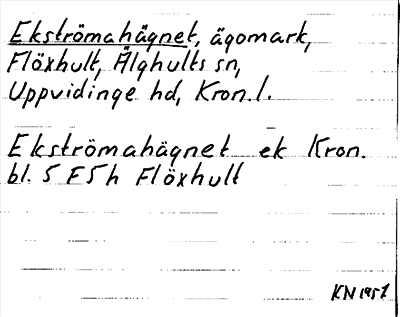 Ekströmahägnet, ägomark,
Flöxhult, Älghults sn,
Uppvidinge hd, Kron.l.
Ekströmahägnet ek Kron.
bl. 5 F 5 h Flöxhult
KN 1951